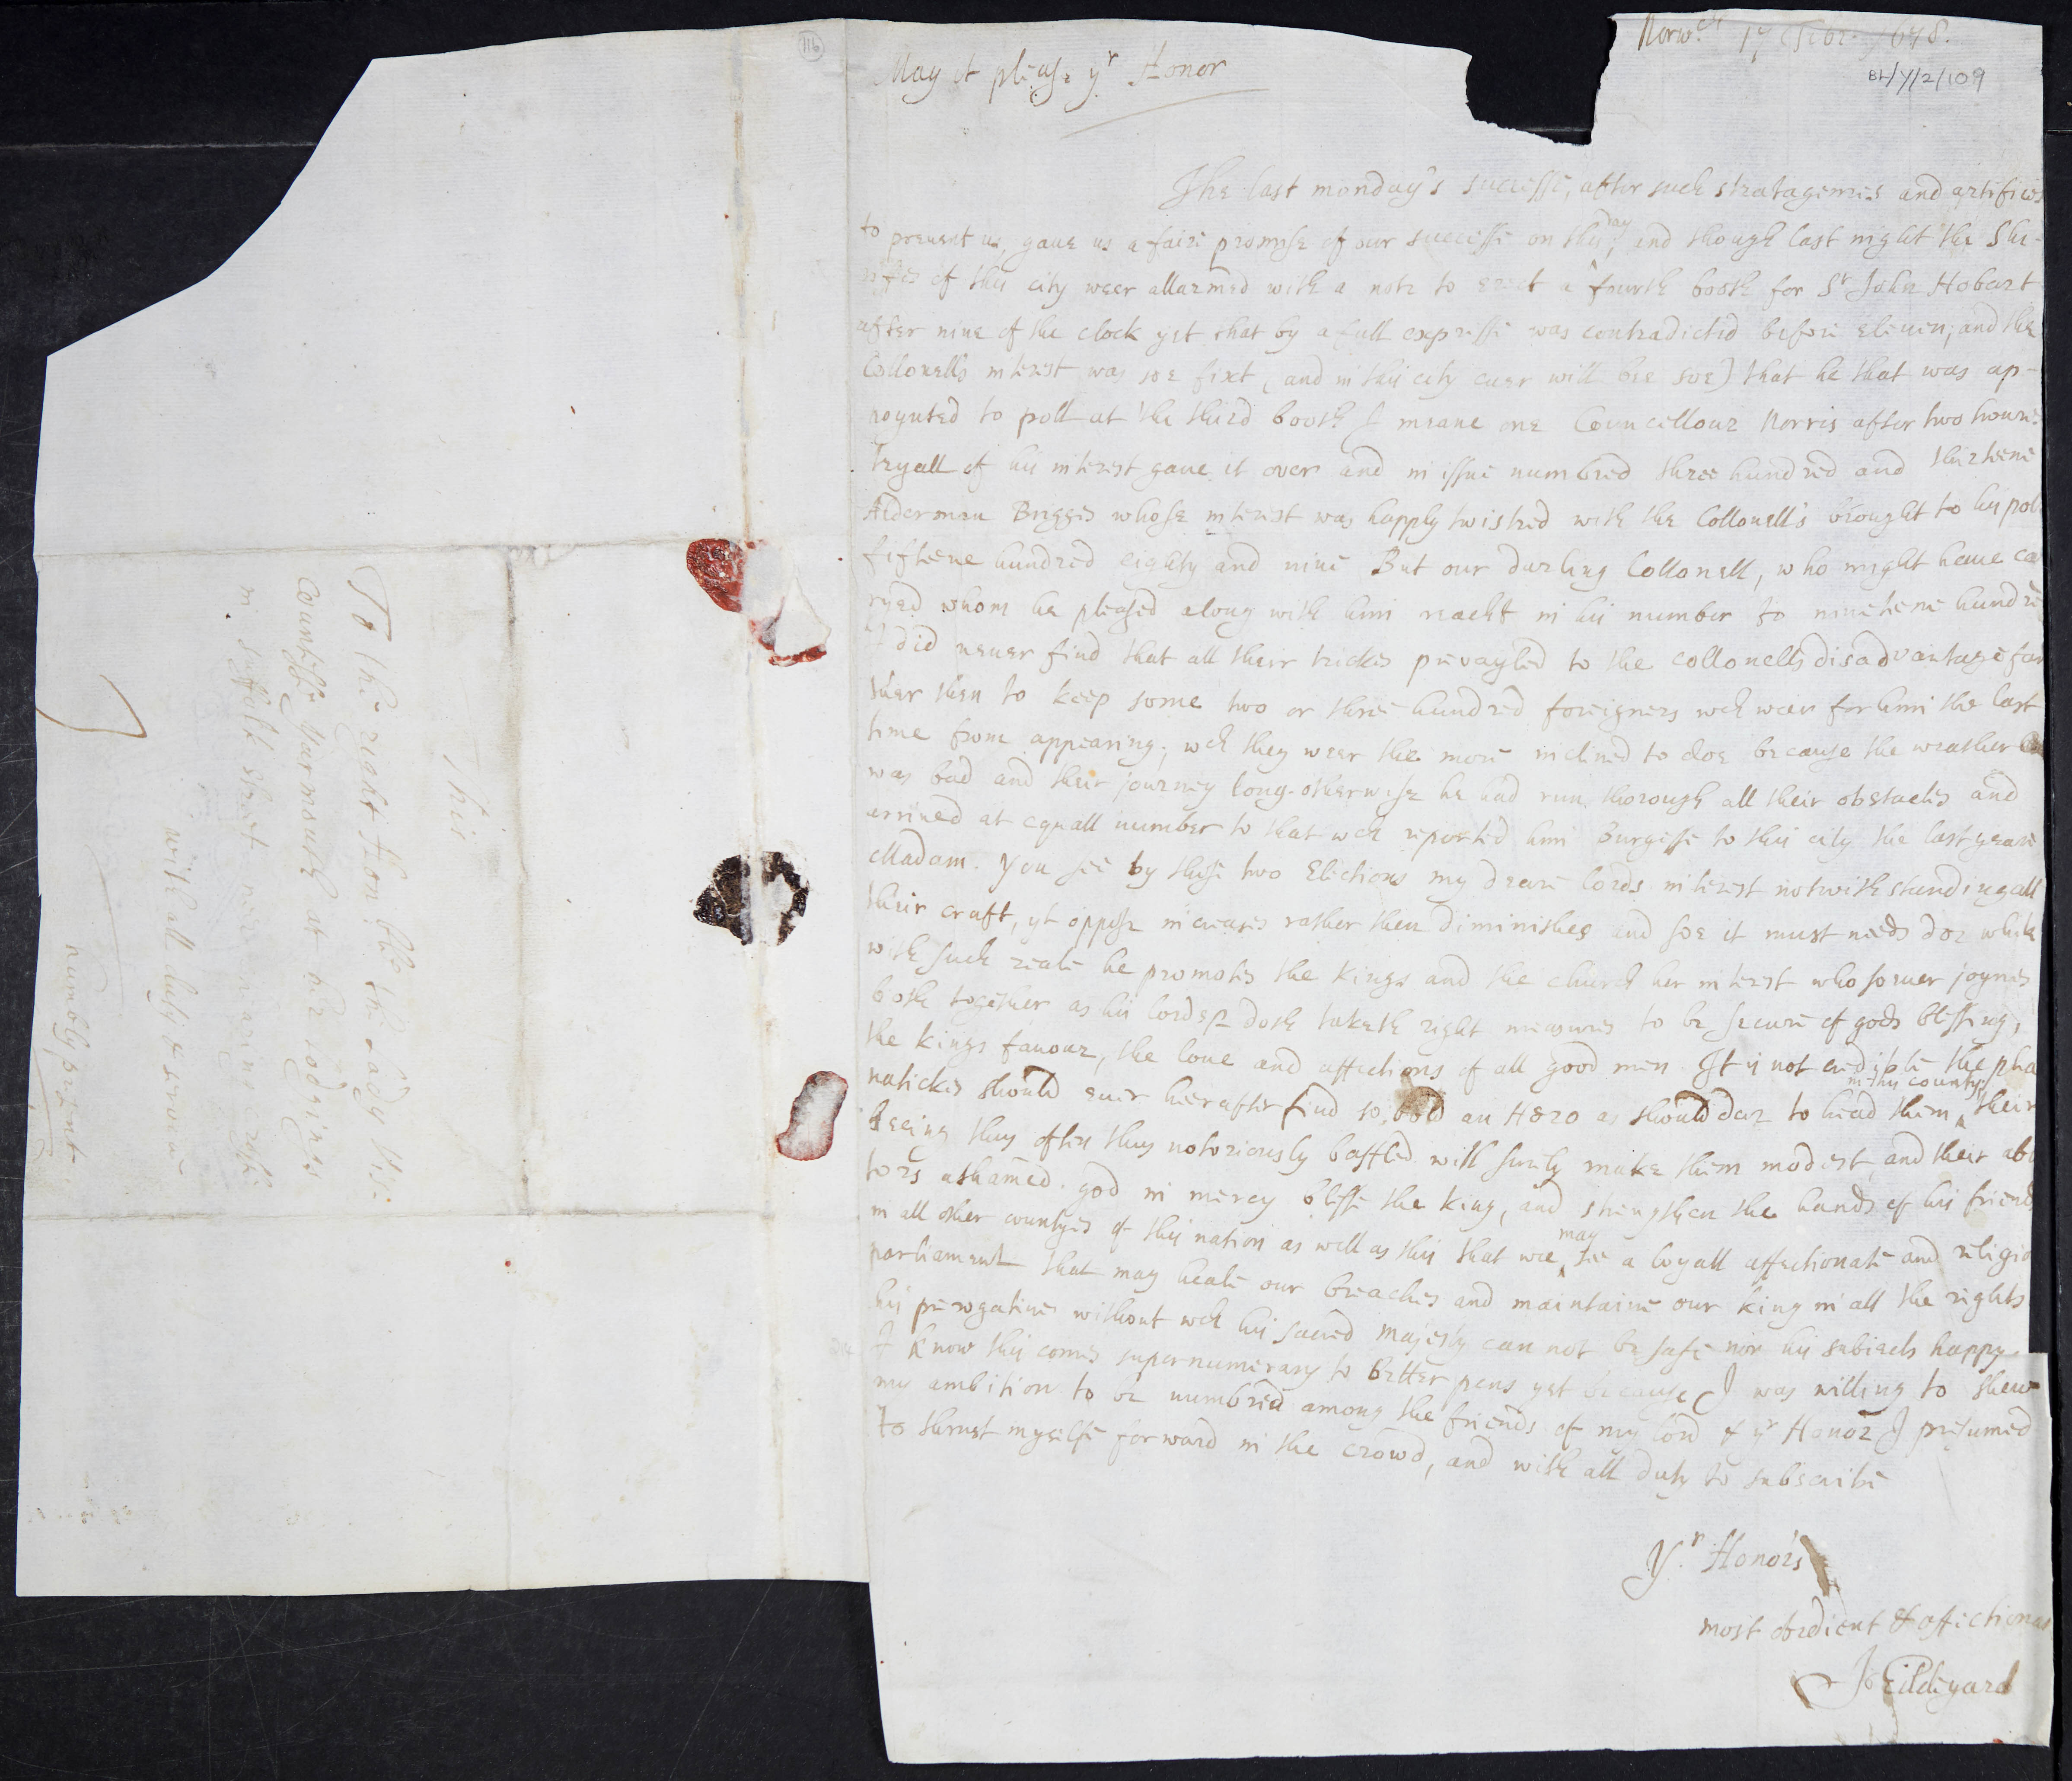 116
Norw.ch 17 Febr. 1678.
BL/Y/2/109
May it please yr Honor
The last monday's successe, after such stratagemes and artifices
to prevent us, gave us a faire promise of our successe on this day, and though last night the She-
rifes of this city weer allarmed with a note to erect a fourth booth for Sr John Hobart
after nine of the clock yet that by a full expresse was contradicted before eleven; and the
Collonells interest was soe fixt, (and in this city ever will bee soe) that he that was ap-
poynted to poll at the third booth I meane one Councellour Norris after two houres
tryall of his interest gave it over and in issue numbred three hundred and thirteene
Alderman Brigges whose interest was happly twisted with the Collonell's brought to his pol
fifteene hundred eighty and nine But our darling Collonell, who might have ca
ryed whom he pleased along with him reacht in his number to nineteene hundre
I did never find that all their trickes prevayled to the collonells disadvantage far
ther then to keep some two or three hundred foreigners wch weer for him the last
time from appearing; wch they weer the more inclined to doe because the weather
was bad and their journey long. otherwise he had run thorough all their obstacles and
arrived at equall number to that wch reported him burgesse to this city the last yeare
Madam. You see by these two Elections my deare lords interest notwithstanding all
their craft, yt oppose increases rather then diminishes and soe it must needs doe while
with such zeale he promotes the kings and the church her interest who soever joynes
both together as his lordsp doth taketh right measures to be secure of gods blessing,
the kings favour, the love and affections of all good men. It is not credible the pha
natickes should ever heerafter find so bold an Hero as should dar to head them in this county, their
beeing thus often thus notoriously baffled will surely make them modest, and their abe
tors ashamed. god in mercy blesse the king, and strengthen the hands of his friends
in all other countyes of this nation as well as this that wee may see a loyall affectionate and religio
parliament that may heale our breaches and maintaine our king in all the rights
his prerogatives without wch his sacred Majesty can not be safe nor his subiects happy.
I know this comes supernumerary to better pens yet because I was willing to shew
my ambition to be numbred among the friends of my lord & yr Honor I presumed
to thrust myselfe forward in the crowd, and with all duty to subscribe
Yr. Honors
most obedient & affectiona
Jo Hildeyard
This
To the right Honble the Lady Vis-
Countesse Yarmouth at her lodgings
in suffolk street neer
with all duty & service
humbly present.